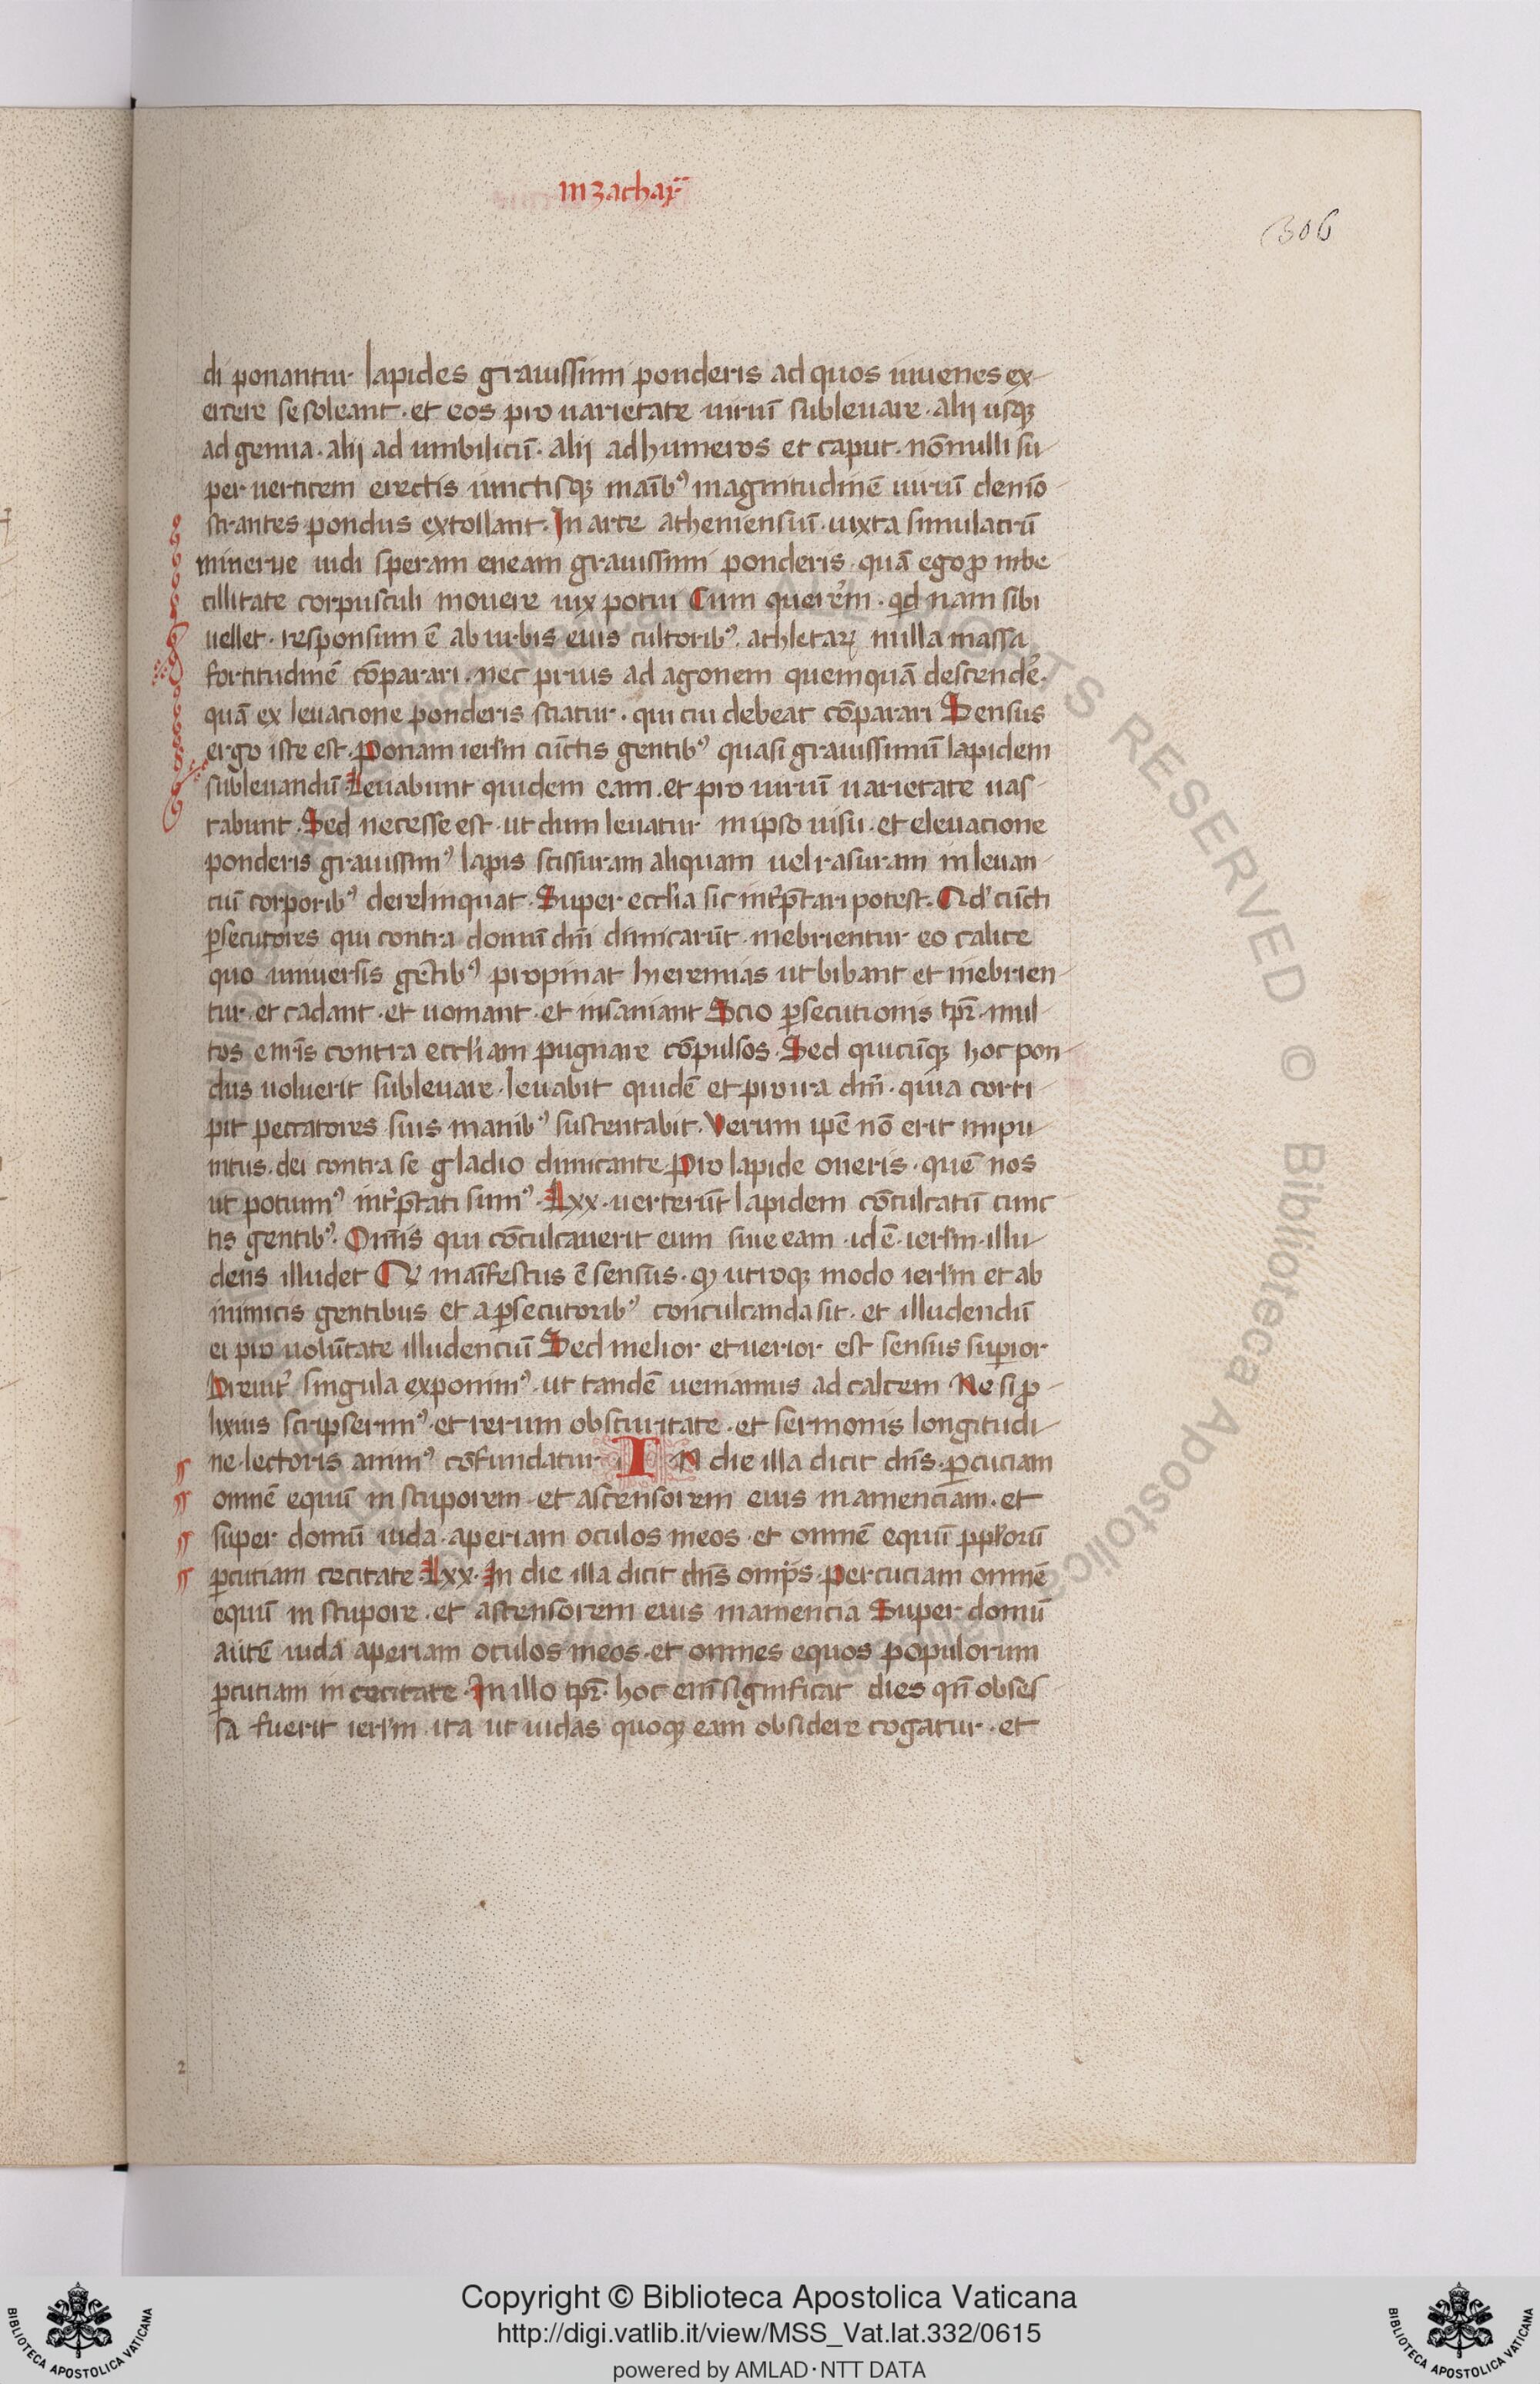 in zachar̄
306
di ponantur lapides grauissimi ponderis ad quos iuuenes ex
ercere se soleant · et eos pro uarietate uiriū subleuare · alij usq;
ad genua · alij ad umbilicū · alij ad humeros et caput · nō nulli su
per uerticem erectis iunctisq; maībꝰ magnitudinē uiriū demō
strantes pondus extollant · In arce atheniensiū · iuxta simulacrū
minerue uidi speram eneam grauissimi ponderis · quā ego ꝓ inbe
cillitate corpusculi mouere uix potui Cum querẽm · qd nam sibi
uellet · responsum ē ab urbis eius cultoribꝰ · athletaꝝ in illa massa
fortitudinē cōparari · nec prius ad agonem quemquā descendẽ ·
quā ex leuacione ponderis sciatur · qui cui debeat cōparari Sensus
ergo iste est · Ponam ierl̄m cūctis gentibꝰ quasi grauissimū lapidem
subleuandū Leuabunt quidem eam · et pro uiriū uarietate uas
tabunt · Sed necesse est · ut dum leuatur in ipso nisu · et eleuacione
ponderis grauissimꝰ lapis scissuram aliquam uel rasuram in leuan
ciū corporibꝰ derelinquat · Super eccl̄ia sic int̄p̄tari potest · Qd̓ cūcti
ꝑsecutores qui contra domū dn̄i dimicarūt · inebrientur eo calice
quo uniuersis gētibꝰ propinat hieremias ut bibant et inebrien
tur · et cadant · et uomant · et insaniant Scio ꝑsecutionis tp̄r̄ · mul
tos enīs contra eccl̄iam pugnare cōpulsos · Sed quicūq; hoc pon
dus uoluerit subleuare · leuabit quidē et pro ira dn̄i · quia corri
pit peccatores suis manibꝰ sustentabit · Verum ipē nō erit impu
nitus · dei contra se gladio dimicante Pro lapide oneris · quē nos
ut potuimꝰ int̄p̄tati sumꝰ · Lxx · uerterūt lapidem cōculcatū cunc
tis gentibꝰ · Om̄is qui cōculcauerit eum siue eam · id ē · ierl̄m · illu
dens illudet Et maīfestus ē sensus · ꝙ utroq; modo ierl̄m et ab
inimicis gentibus et a ꝑsecutoribꝰ conculcanda sit · et illudendū
ei pro volūtate illudenciū Sed melior et uerior est sensus suꝑior
Breuit̄ singula exponimꝰ · ut tandē ueniamus ad calcem Ne si ꝓ
lixius scripserimꝰ · et rerum obscuritate · et sermonis longitudi
ne · lectoris animꝰ cōfundatur IN die illa dicit dn̄s · ꝑcuciam
omnē equū in stuporem · et ascensorem eius in amenciam · et
super domū iuda · aperiam oculos meos · et omnē equū ppl̓orū
ꝑcutiam cecitate · Lxx · In die illa dicit dn̄s omp̄s · Percuciam omnē
equū in stupore · et ascensorem eius in amencia Super domū
autē iuda aperiam oculos meos · et omnes equos populorum
ꝑcutiam in cecitate · In illo tp̄r̄ · hoc enī significat dies qn̄ obses
sa fuerit ierl̄m · ita ut iudas quoq; eam obsidere cogatur · et
2
Copyright © Biblioteca Apostolica Vaticana
http://digi.vatlib.it/view/MSS_Vat.lat.332/0615
powered by AMLAD·NTT DATA